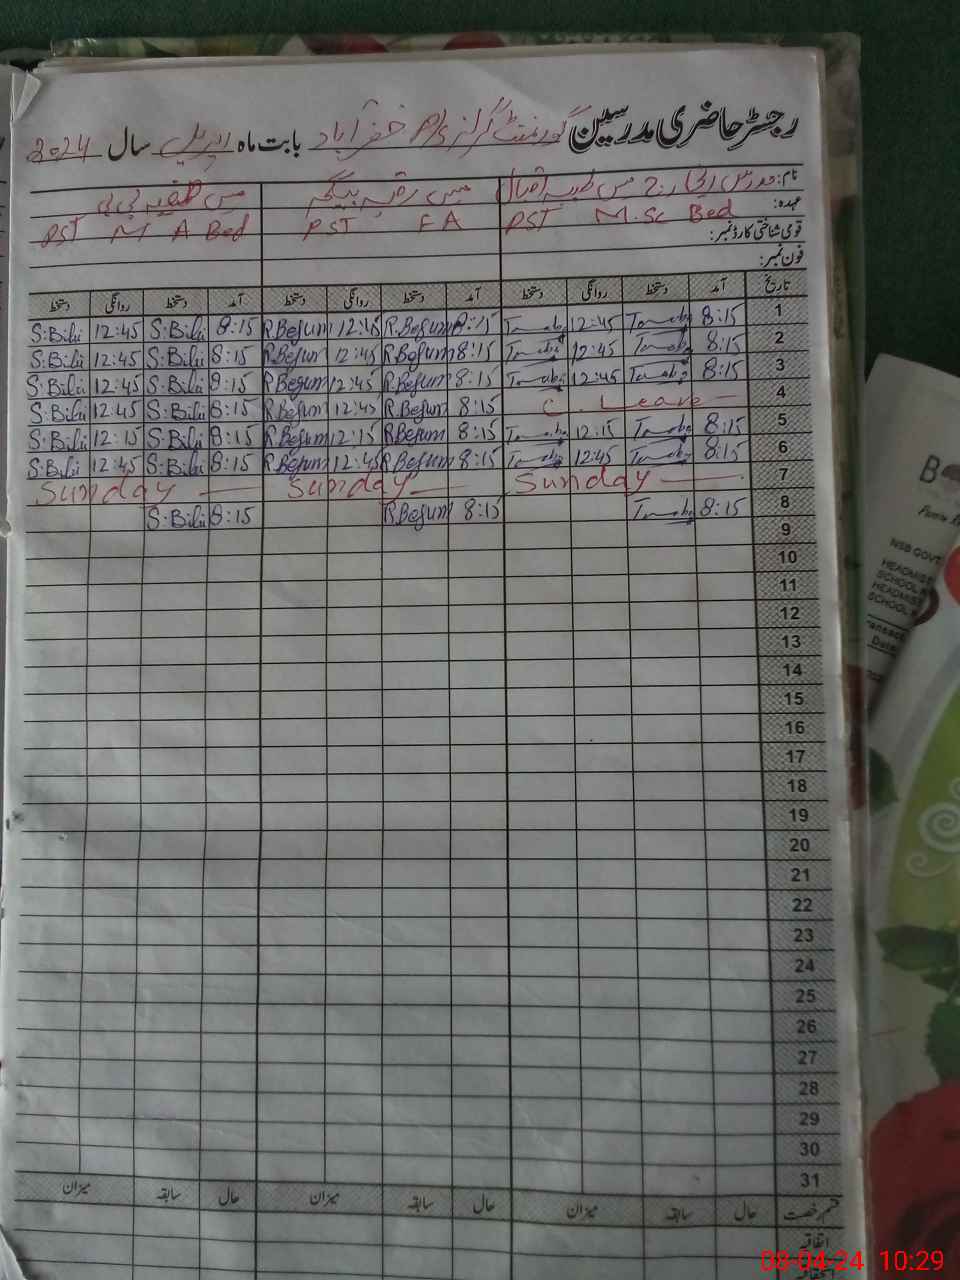 رجسٹر حاضری مدرسین گورنمنٹ گرلز P/S خضرآباد بابت ماہ اپریل سال 2024
نام: مدرس انچارج مس طیبہ اقبال مس رقیہ بیگم مس بی بی
عہدہ: PST M.Sc Bed PST F A PST M A Bed
قومی شناختی کارڈ نمبر:
فون نمبر:
تاریخ آمد دستخط روانگی دستخط آمد دستخط روانگی دستخط آمد دستخط روانگی دستخط
1 8:15 12:45 8:15 R.Begum 12:45 R.Begum 8:15 S.Bibi 12:45 S.Bibi
2 8:15 12:45 8:15 R.Begum 12:45 R.Begum 8:15 S.Bibi 12:45 S.Bibi
3 8:15 12:45 8:15 R.Begum 12:45 R.Begum 8:15 S.Bibi 12:45 S.Bibi
4 C. Leave 8:15 R.Begum 12:45 R.Begum 8:15 S.Bibi 12:45 S.Bibi
5 8:15 12:15 8:15 R.Begum 12:15 R.Begum 8:15 S.Bibi 12:15 S.Bibi
6 8:15 12:45 8:15 R.Begum 12:45 R.Begum 8:15 S.Bibi 12:45 S.Bibi
7 Sunday Sunday Sunday
8 8:15 8:15 R.Begum 8:15 S.Bibi
9
10
11
12
13
14
15
16
17
18
19
20
21
22
23
24
25
26
27
28
29
30
31
قسم رخصت حال سابقہ میزان حال سابقہ میزان حال سابقہ میزان
اتفاقیہ
NSB GOVT
HEADMIST
SCHOOL
HEADMIST
SCHOOL
08-04-24 10:29